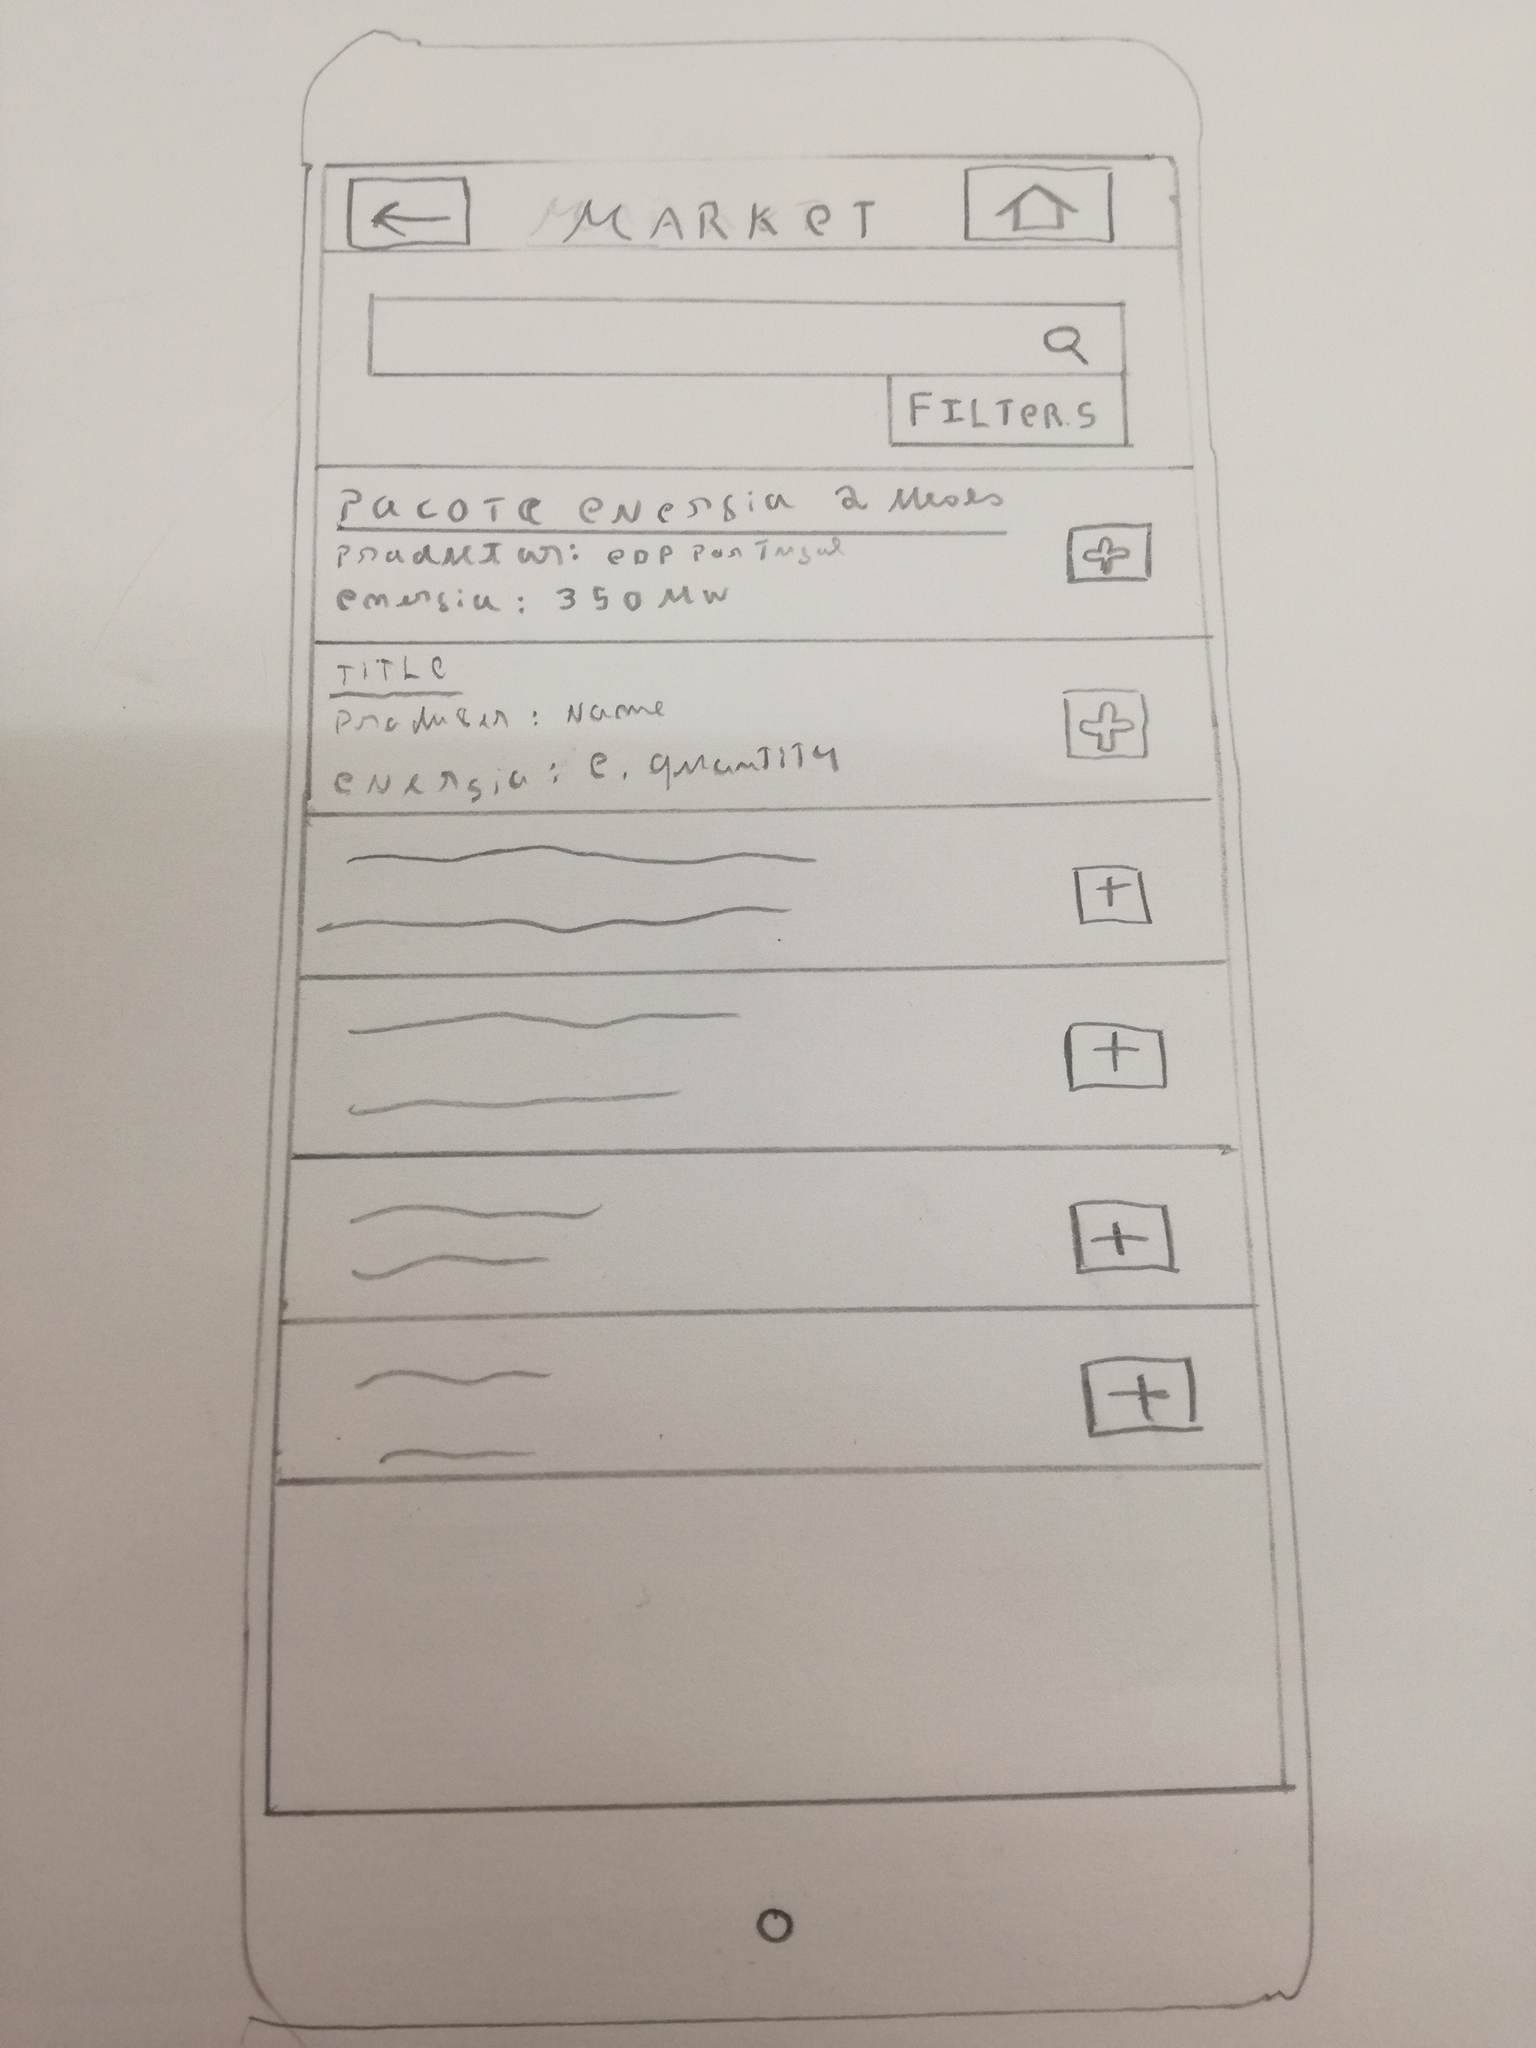 MARKET
FILTERS
Pacote energia 2 meses
Produtor: EDP Portugal
energia: 350 MW
TITLE
Produser: Name
energia: e. quantity